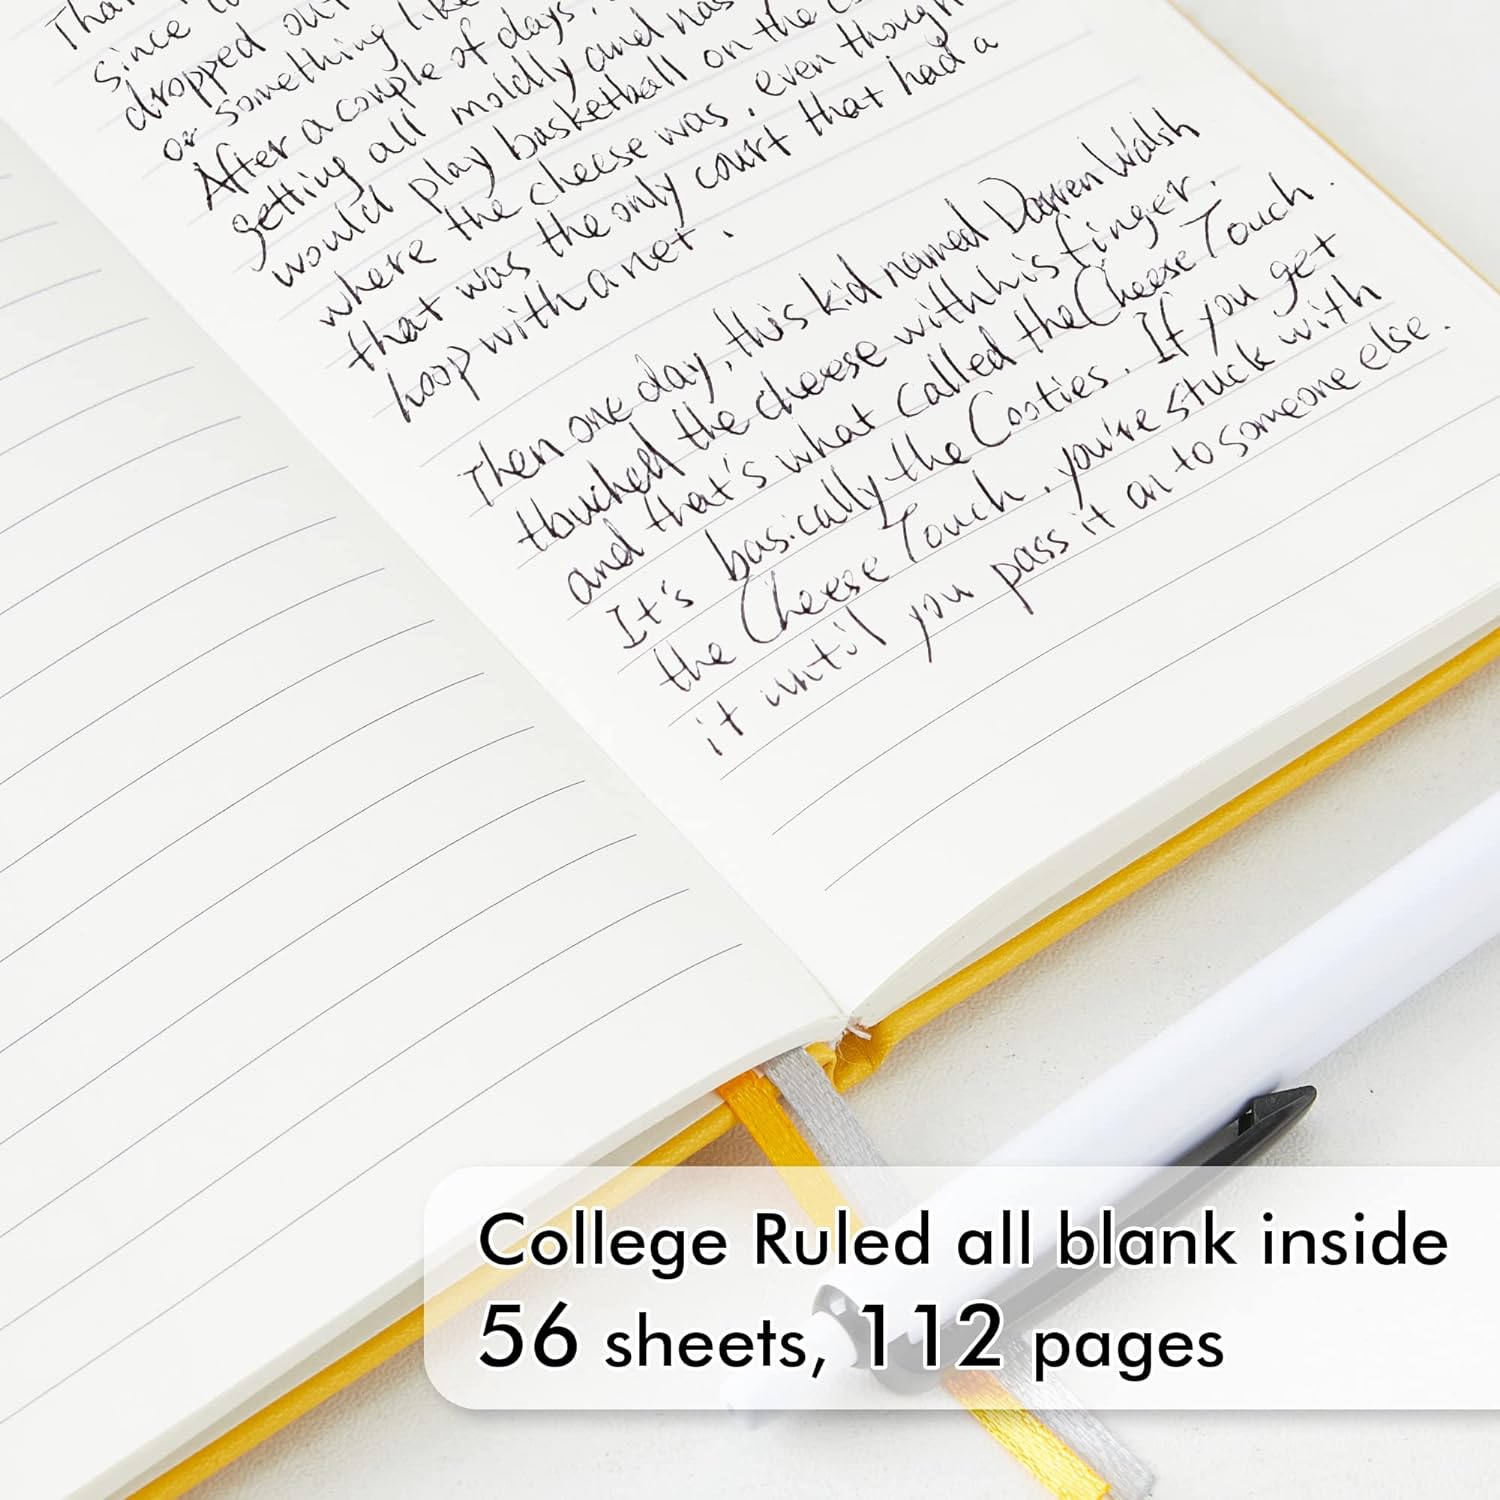 That
since
dropped out
or something like
After a couple of days,
getting all moldly and nas
would play basketball on the c
where the cheese was. even though
that was the only court that had a
hoop with a net.
Then one day, this kid named Darren Walsh
thouched the cheese with his finger.
and that's what called the Cheese Touch.
It's basically the Cooties. If you get
the Cheese Touch. you're stuck with
it until you pass it on to someone else.
College Ruled all blank inside
56 sheets, 112 pages